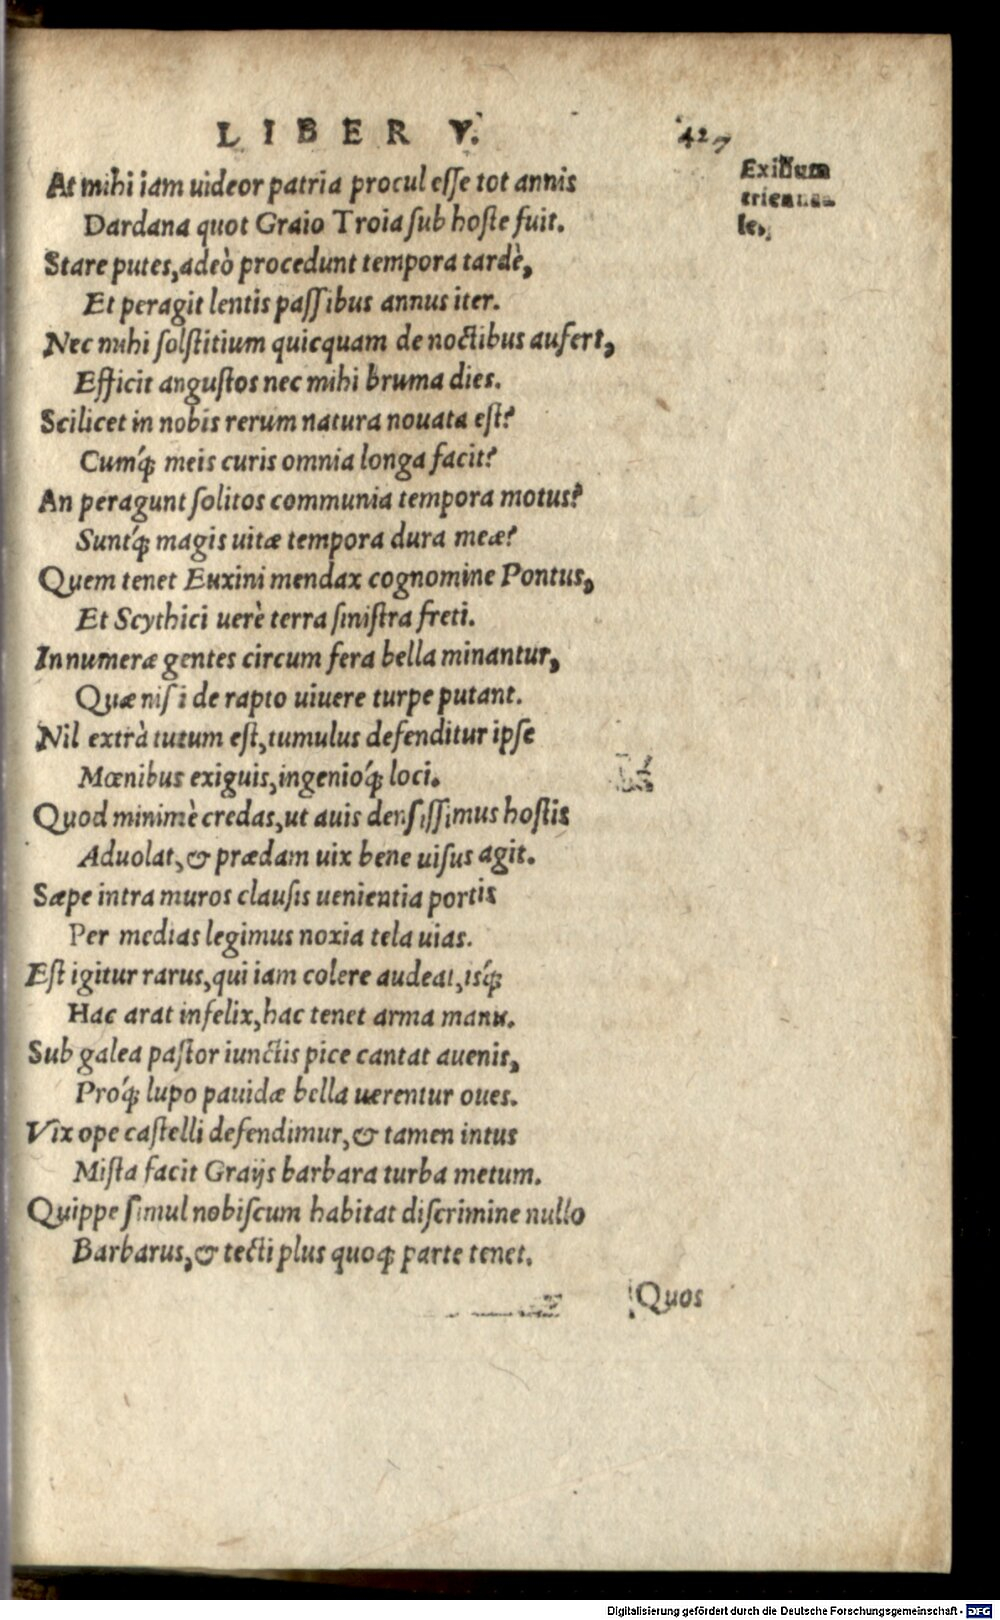 LIBER V. 427
At mihi iam uideor patria procul esse tot annis
Dardana quot Graio Troia sub hoste fuit.
Stare putes, adeò procedunt tempora tardè,
Et peragit lentis passibus annus iter.
Nec mihi solstitium quicquam de noctibus aufert,
Efficit angustos nec mihi bruma dies.
Scilicet in nobis rerum natura nouata est?
Cumq́; meis curis omnia longa facit?
An peragunt solitos communia tempora motus?
Suntq́; magis uitæ tempora dura meæ?
Quem tenet Euxini mendax cognomine Pontus,
Et Scythici uerè terra sinistra freti.
Innumeræ gentes circum fera bella minantur,
Quæ nisi de rapto uiuere turpe putant.
Nil extrà tutum est, tumulus defenditur ipse
Mœnibus exiguis, ingenioq́; loci.
Quod minimè credas, ut auis densissimus hostis
Aduolat, & prædam uix bene uisus agit.
Sæpe intra muros clausis uenientia portis
Per medias legimus noxia tela uias.
Est igitur rarus, qui iam colere audeat, isq́;
Hac arat infelix, hac tenet arma manu.
Sub galea pastor iunctis pice cantat auenis,
Proq́; lupo pauidæ bella uerentur oues.
Vix ope castelli defendimur, & tamen intus
Mista facit Graijs barbara turba metum.
Quippe simul nobiscum habitat discrimine nullo
Barbarus, & tecti plus quoq; parte tenet.
Quos
Exilium
trienna
le.
Digitalisierung gefördert durch die Deutsche Forschungsgemeinschaft - DFG